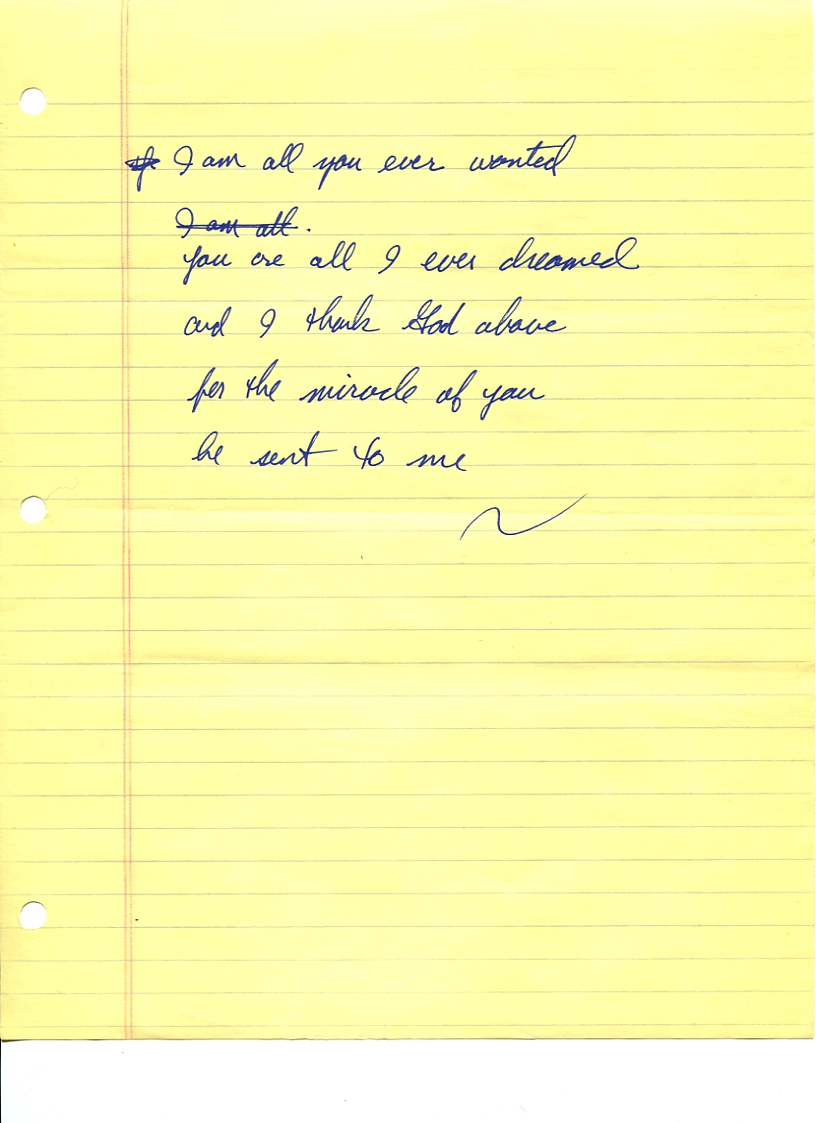 If I am all you ever wanted
I am all.
you are all I ever dreamed
and I thank God above
for the miracle of you
he sent to me